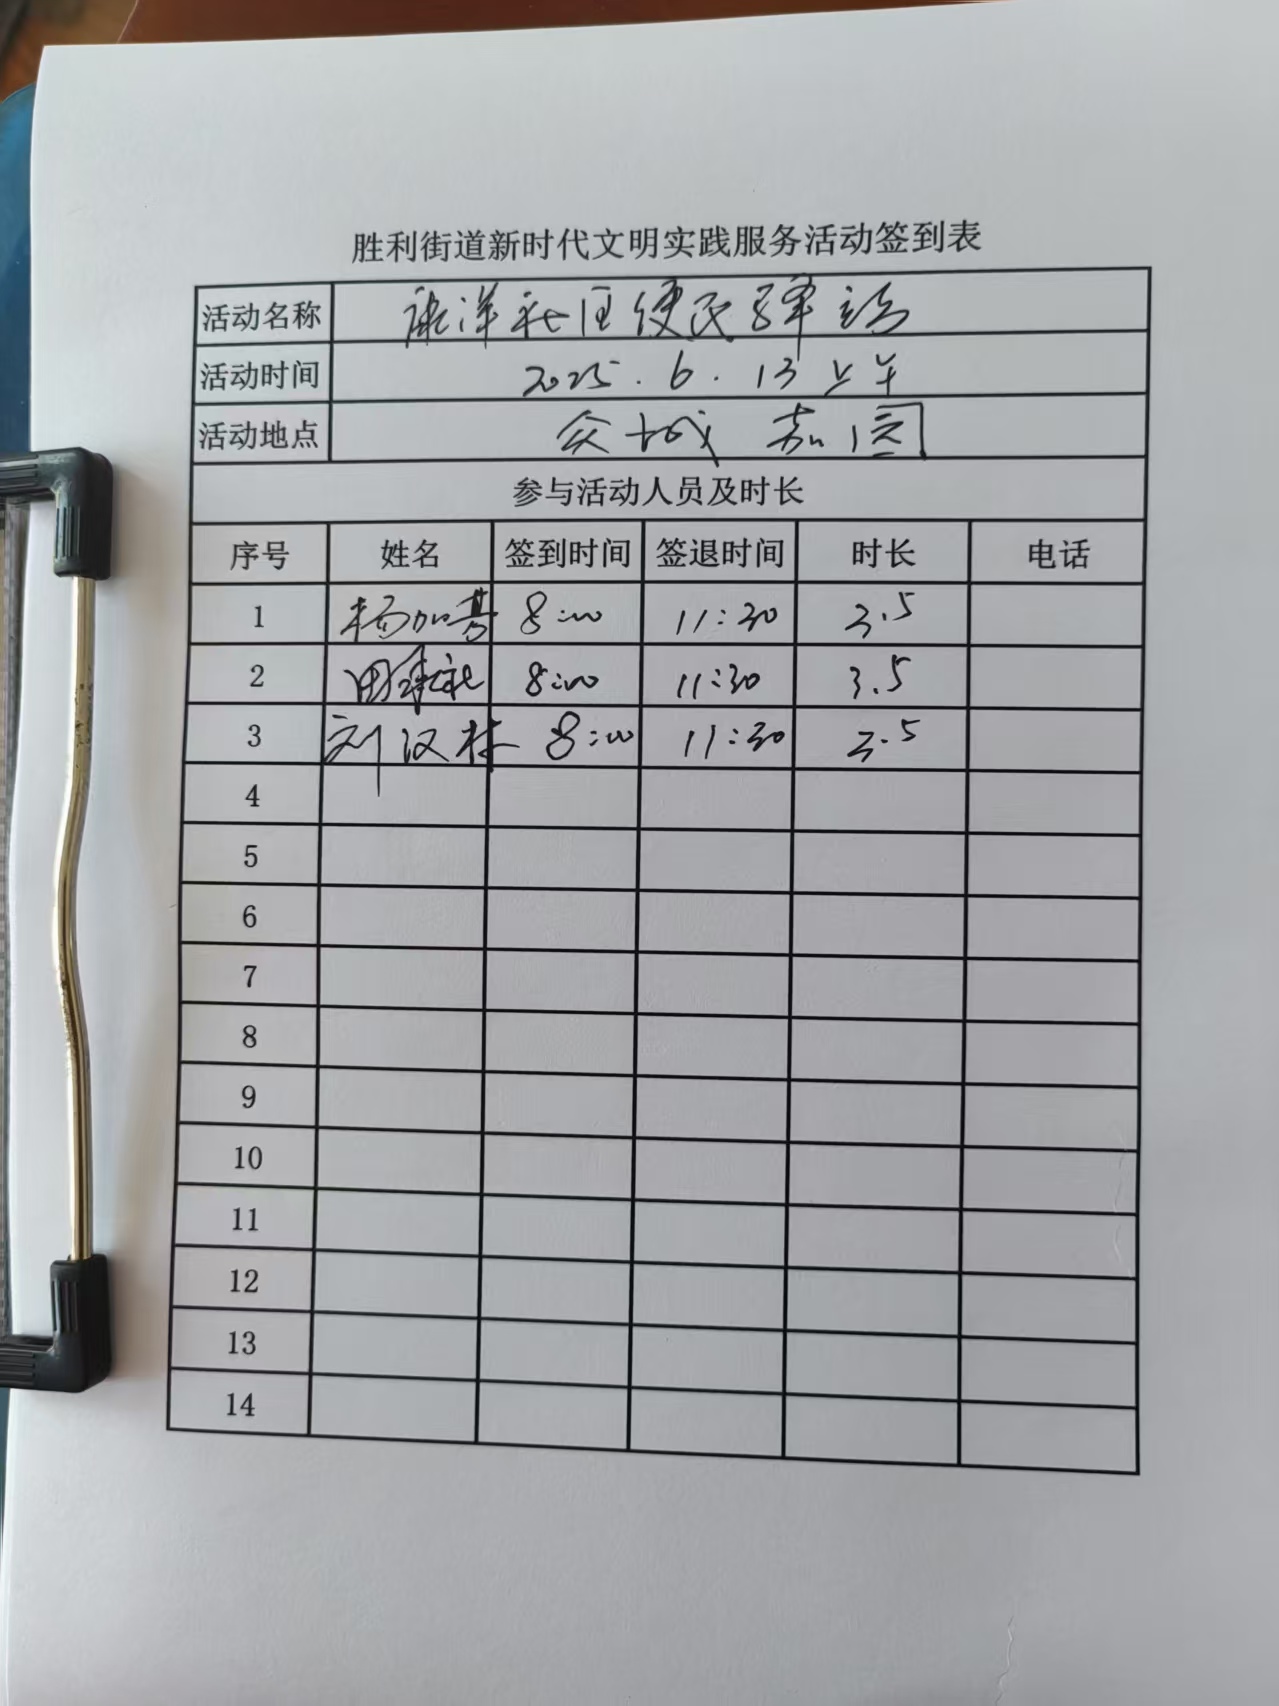 胜利街道新时代文明实践服务活动签到表
活动名称 康洋社区便民驿站
活动时间 2025.6.13上午
活动地点 众城嘉园
参与活动人员及时长
序号 姓名 签到时间 签退时间 时长 电话
1 杨加芳 8:00 11:30 3.5
2 田 8:00 11:30 3.5
3 刘汉林 8:00 11:30 3.5
4
5
6
7
8
9
10
11
12
13
14